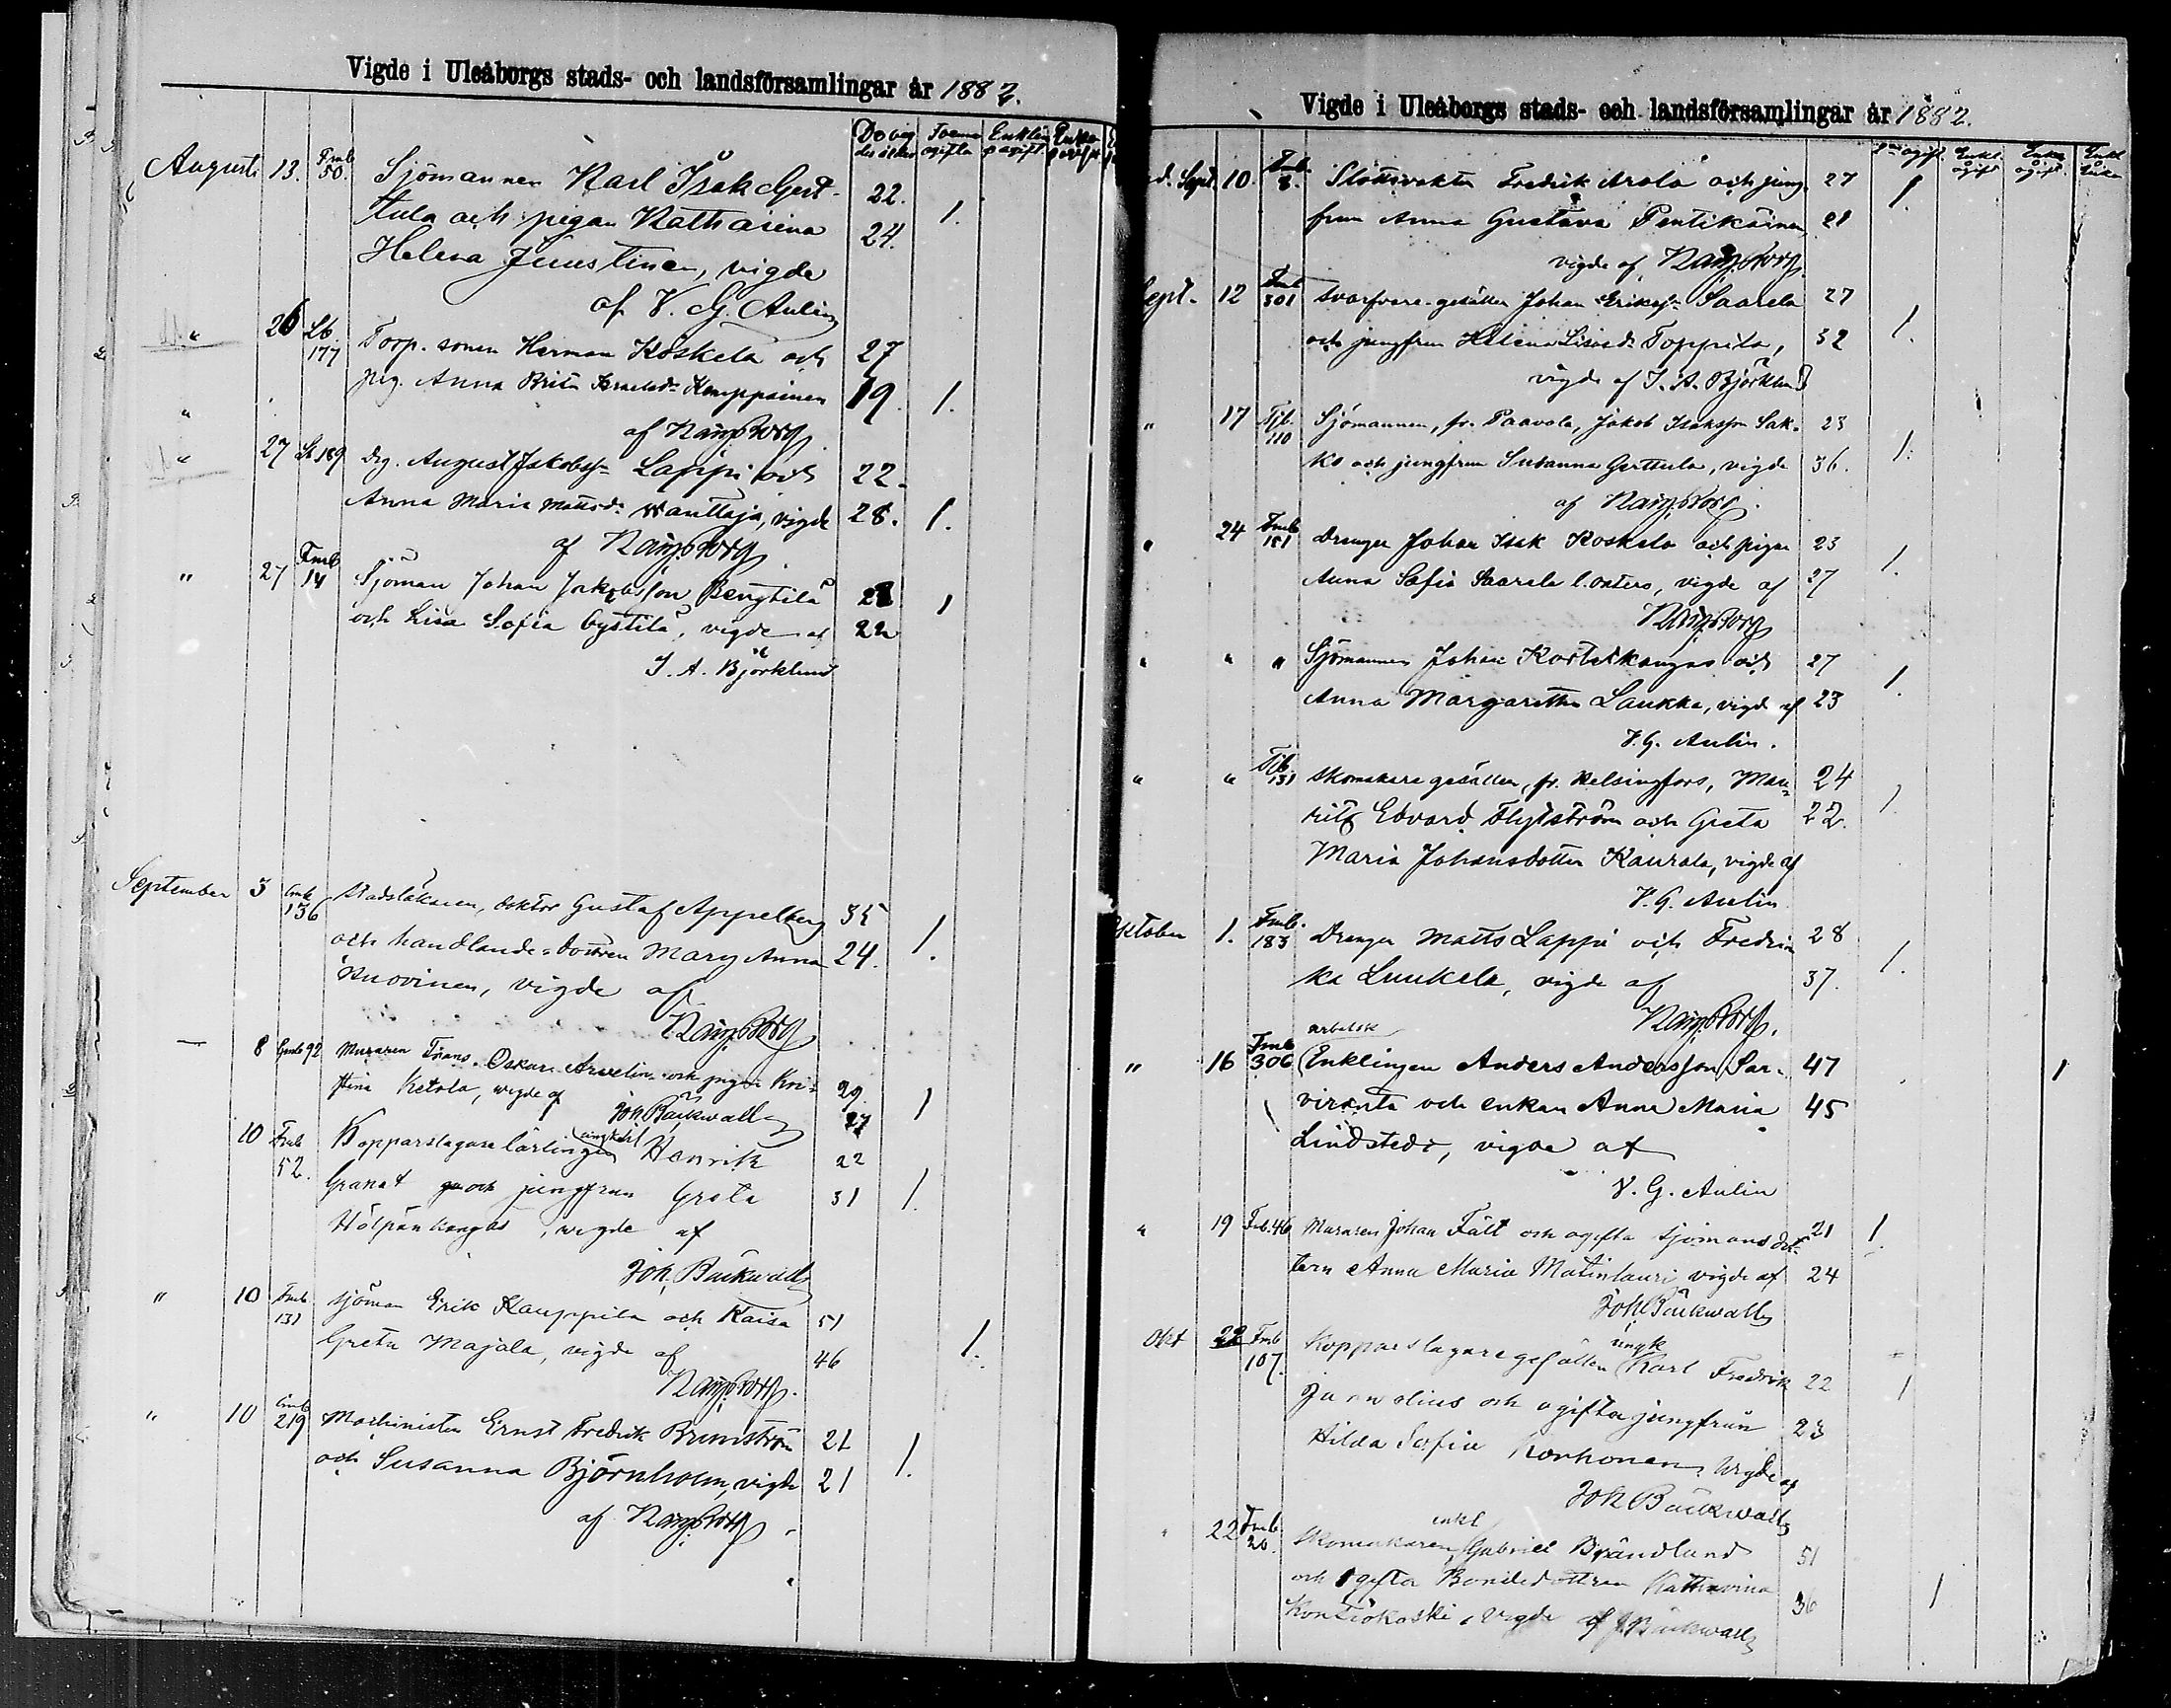 Vigde i Uleåborgs stads- och landsförsamlingar år 1882.
Augusti 13. Fmb 50. Sjömannen Karl Isak Gert- 22. 1.
tula och pigan Katharina 24.
Helena Juustinen, vigde
af V. G. Aulin
" 26 Lb 177 Torp. sonen Herman Koskela och 27
pig. Anna Brita Kemppainen 19. 1.
af
" 27 Lb 189 Dg. August Jakobss. Lappi och 22.
Anna Maria Mattsdr. Wanttaja, vigde 28. 1.
af
" 27 Fmb 14 Sjöman Johan Jakobsson Bengtilä 28 1
och Lisa Sofia Gystilä, vigde af 22
J. A. Björklund
September 3 136 Stadsläkaren, doktor Gustaf Appelberg 35
och handlande-dottren Mary Anna 24. 1.
Snovinen, vigde af
8 92 Muraren Frans Oskar Arvelin och pigan Kri- 29.
stina Ketola, vigde af Joh. Bäckwall 27 1
10 Fmb 52. Kopparslagare lärlingen Henrik 22
Granat och jungfrun Greta 31 1.
Hölpänkangas, vigde af
Joh. Bäckwall
" 10 Fmb 131 sjöman Erik Kauppila och Kaisa 51
Greta Majala, vigde af 46 1.
" 10 219 Machinisten Ernst Fredrik Brunström 21
och Susanna Björnholm, vigde 21 1.
af
Vigde i Uleåborgs stads- och landsförsamlingar år 1882.
d. Sept. 10. Fmb. 8. Slottsvakten Fredrik Arola och jung- 27 1
frun Anna Gustava Pentikäinen 21
vigde af
Sept. 12 Fmb 301 Svarfvare-gesällen Johan Erikss. Saarela 27
och jungfrun Helena Lisa Toppila, 32 1.
vigde af J. A. Björklund
" 17 Tjb. 110 Sjömannen, fr. Paavola, Jakob Isaksson Sak- 23
ko och jungfrun Susanna Gerttula, vigde 36. 1.
af
" 24 Fmb 181 Drengen Johan Isak Koskela och pigan 23
Anna Sofia Saarela, vigde af 27 1.
" " " Sjömannen Johan Kortetkangas och 27
Anna Margaretha Laukka, vigde af 23 1.
V. G. Aulin.
" " Tjb. 131 Skomakare gesällen, fr. Helsingfors, Mau- 24
ritz Edvard Flytström och Greta 22. 1.
Maria Johansdotter Kaurala, vigde af
V. G. Aulin
Oktober 1. Fmb. 183 Drengen Matts Lappi och Fredri- 28
ka Luukela, vigde af 37. 1.
arbetsk
" 16 Fmb 306 Enklingen Anders Andersson Sar- 47 1
viranta och enkan Anna Maria 45
Lindstedt, vigde af
V. G. Aulin
" 19 Fmb. 46 Muraren Johan Fält och ogifta sjömansdot- 21 1.
tern Anna Maria Matinlauri vigde af 24
Joh. Bäckwall
Okt 22 Fmb 107. Kopparslagaregesällen ungk Karl Fredrik 22 1
Junnelius och ogifta jungfrun 23
Hilda Sofia Korhonen, vigde af
Joh Bäckwall
" 22 Fmb 20. Skomakaren enkl Gabriel Brändlund 51
och ogifta Bondedottren Katharina 36 1
Kontiokoski, vigde af J. Bäckwall